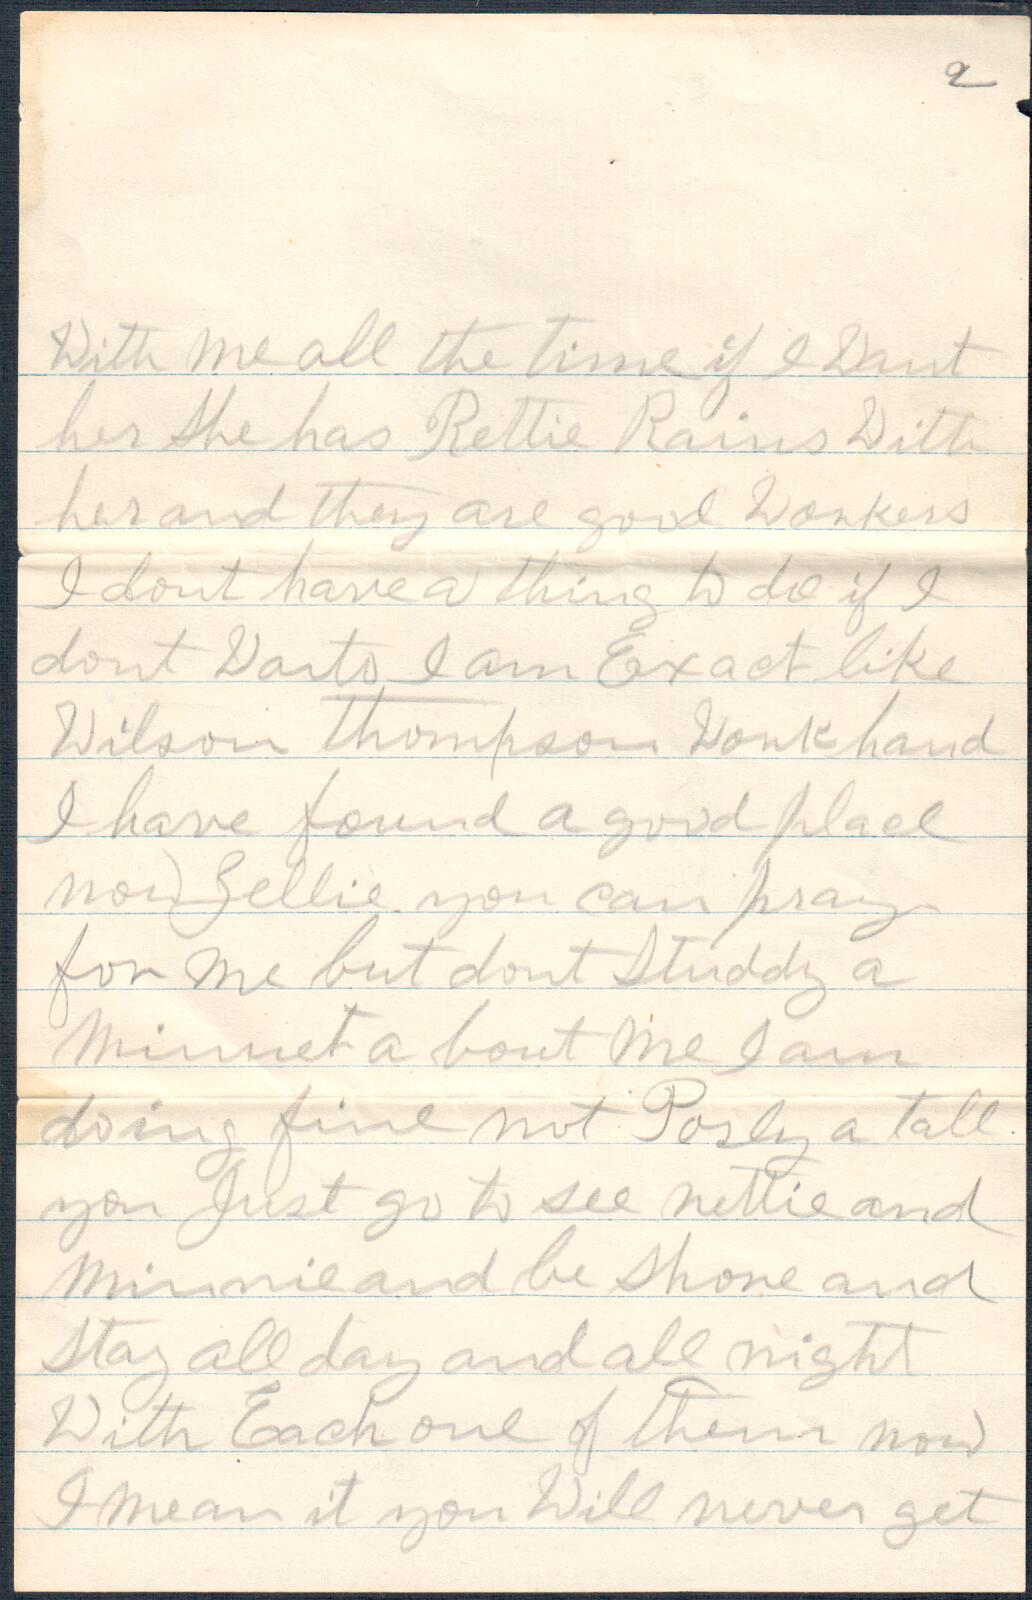 2
With me all the time if I Want
her She has Rettie Rains With
her and they are good Workers
I dont have a thing to do if I
dont Wanto I am Exact like
Wilson Thompson Work hand
I have found a good place
now Zellie you can pray
for me but dont Studdy a
Minnet a bout Me I am
doing fine not Posly a tall
you Just go to see nettie and
Minnie and be Shore and
Stay all day and all night
With Each one of them now
I mean it you Will never get